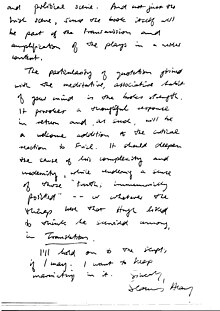 and political scene. And not just the
Irish scene, since the book itself will
be part of the transmission and
amplification of the plays in a wider
context.
The particularity of quotation joined
with the meditative, associative habit
of your mind is the book's strength.
It provokes a thoughtful response
in return and, as such, will be
a welcome addition to the critical
reaction to Friel. It should deepen
the sense of his complexity and
modernity, while rendering a sense
of those truths, immemorially
posited — or whatever the
things were that Hugh liked
to think he resided among,
in Translations.
I'll hold on to the script,
if I may. I want to keep
in it. Sincerely,
Seamus Heaney